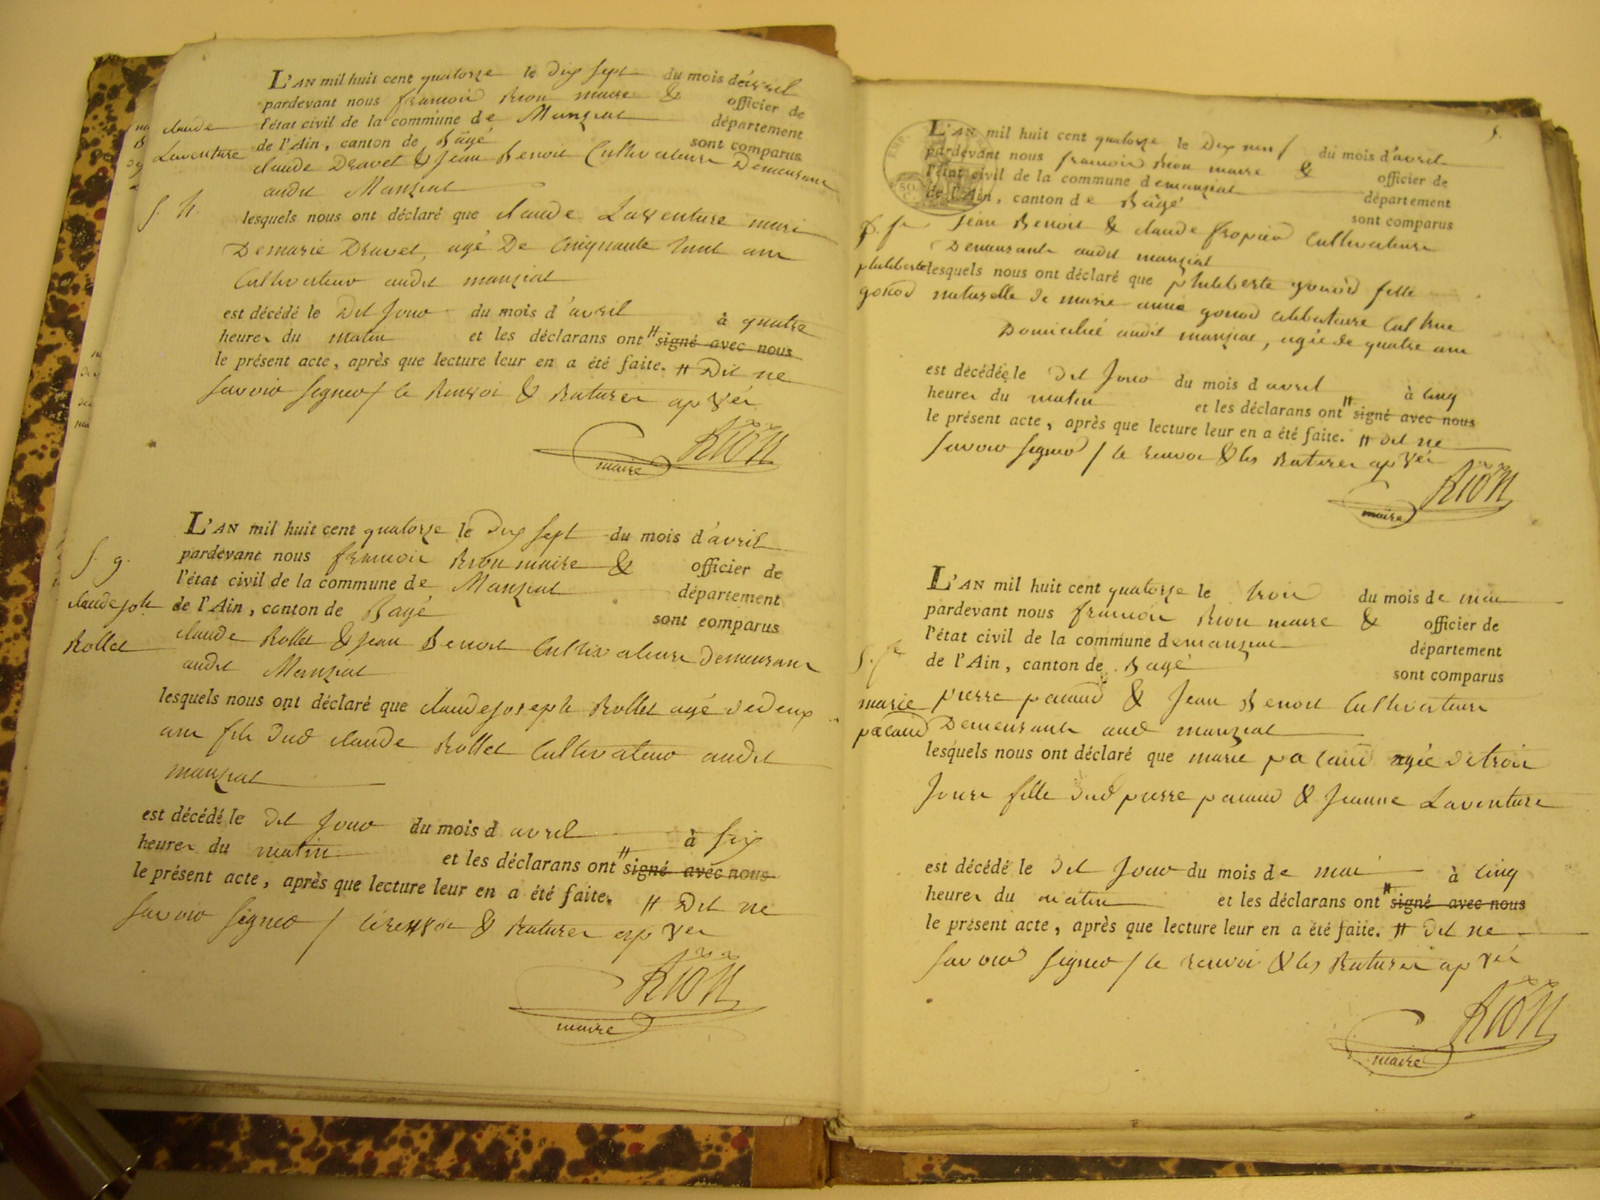 L'AN mil huit cent quatorze le dix sept du mois d'avril
pardevant nous francois Rion maire & officier de
l'état civil de la commune de Manziat département
de l'Ain, canton de Bagé sont comparus
claude Dravet & Jean Benoit Cultivateurs Demeurans
audit Manziat
claude
Laventure
s. h.
lesquels nous ont déclaré que claude Laventure mari
De marie Dravet, agé De Cinquante huit ans
Cultivateur audit manziat
est décédé le Dit Jour du mois d'avril à quatre
heures du matin et les déclarans ont # signé avec nous
le présent acte, après que lecture leur en a été faite. # Dit ne
savoir signer / le Renvoi & Ratures apvés
Rion
maire
L'AN mil huit cent quatorze le dix sept du mois d'avril
pardevant nous francois Rion maire & officier de
l'état civil de la commune de Manziat département
de l'Ain, canton de Bagé sont comparus
claude Rollet & Jean Benoit Cultivateurs Demeurans
audit Manziat
s. g.
claude joh
Rollet
lesquels nous ont déclaré que claude joseph Rollet agé de deux
ans fils dud claude Rollet Cultivateur audit
manziat
est décédé le dit Jour du mois d avril à six
heures du matin et les déclarans ont # signé avec nous
le présent acte, après que lecture leur en a été faite. # Dit ne
savoir signer / le renvoi & Ratures apvés
Rion
maire
L'AN mil huit cent quatorze le Dix neuf du mois d'avril
pardevant nous francois Rion maire & officier de
l'état civil de la commune de manziat département
de l'Ain, canton de Bagé sont comparus
Jean Benoit & claude Cultivateurs
Demeurants audit manziat
philiberte
gonod
lesquels nous ont déclaré que philiberte gonod fille
naturelle de marie anne gonod célibataire Cult
Domicilié audit manziat, agée de quatre ans
est décédée le dit Jour du mois d avril à cinq
heures du matin et les déclarans ont # signé avec nous
le présent acte, après que lecture leur en a été faite. # dit ne
savoir signer / le renvoi & les Ratures apvés
Rion
maire
L'AN mil huit cent quatorze le trois du mois de mai
pardevant nous francois Rion maire & officier de
l'état civil de la commune de manziat département
de l'Ain, canton de Bagé sont comparus
pierre pacaud & Jean Benoit Cultivateurs
Demeurants aud manziat
marie
pacaud
lesquels nous ont déclaré que marie pacaud agée de trois
Jours fille dud pierre pacaud & Jeanne Laventure
est décédé le dit Jour du mois de mai à cinq
heures du matin et les déclarans ont # signé avec nous
le présent acte, après que lecture leur en a été faite. # dit ne
savoir signer / le renvoi & les Ratures apvés
Rion
maire